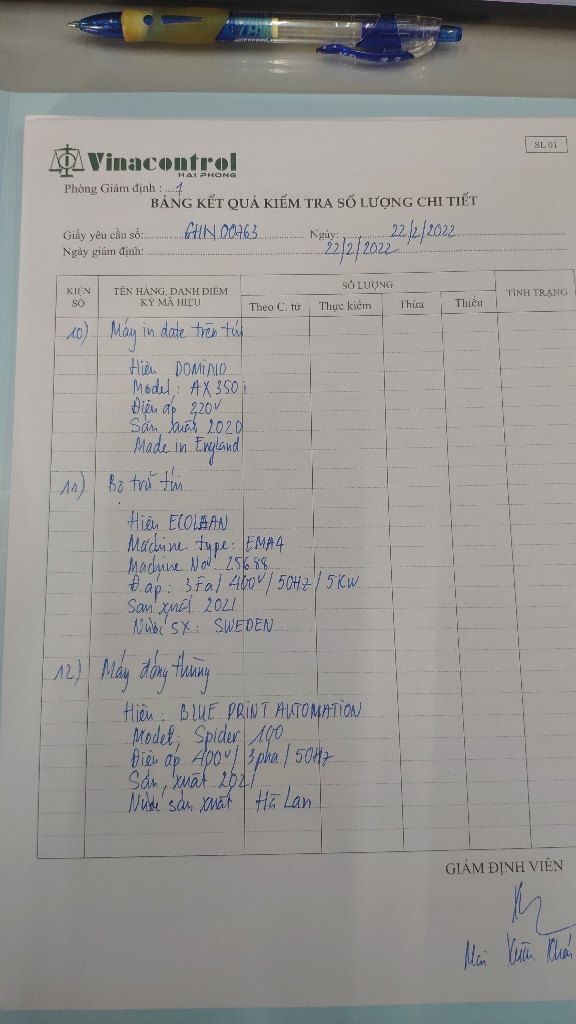 SL 01
Vinacontrol
HAI PHONG
Phòng Giám định : 1
BẢNG KẾT QUẢ KIỂM TRA SỐ LƯỢNG CHI TIẾT
Giấy yêu cầu số: GHN 00763 Ngày: 22/2/2022
Ngày giám định: 22/2/2022
KIỆN SỐ
TÊN HÀNG, DANH ĐIỂM KÝ MÃ HIỆU
SỐ LƯỢNG
TÌNH TRẠNG
Theo C. từ Thực kiểm Thừa Thiếu
10) Máy in date trên túi
Hiệu DOMINO
Model: AX 350i
Điện áp 220V
Sản xuất 2020
Made in England
11) Bộ trữ túi
Hiệu ECOLEAN
Machine type: EMA4
Machine No: 25688
Đ.áp: 3Fa/ 400V/ 50Hz/ 5KW
Sản xuất 2021
Nước SX: SWEDEN
12) Máy đóng thùng
Hiệu: BLUE PRINT AUTOMATION
Model, Spider 100
Điện áp 400V/ 3pha/ 50Hz
Sản xuất 2021
Nước sản xuất Hà Lan
GIÁM ĐỊNH VIÊN
Mai Xuân